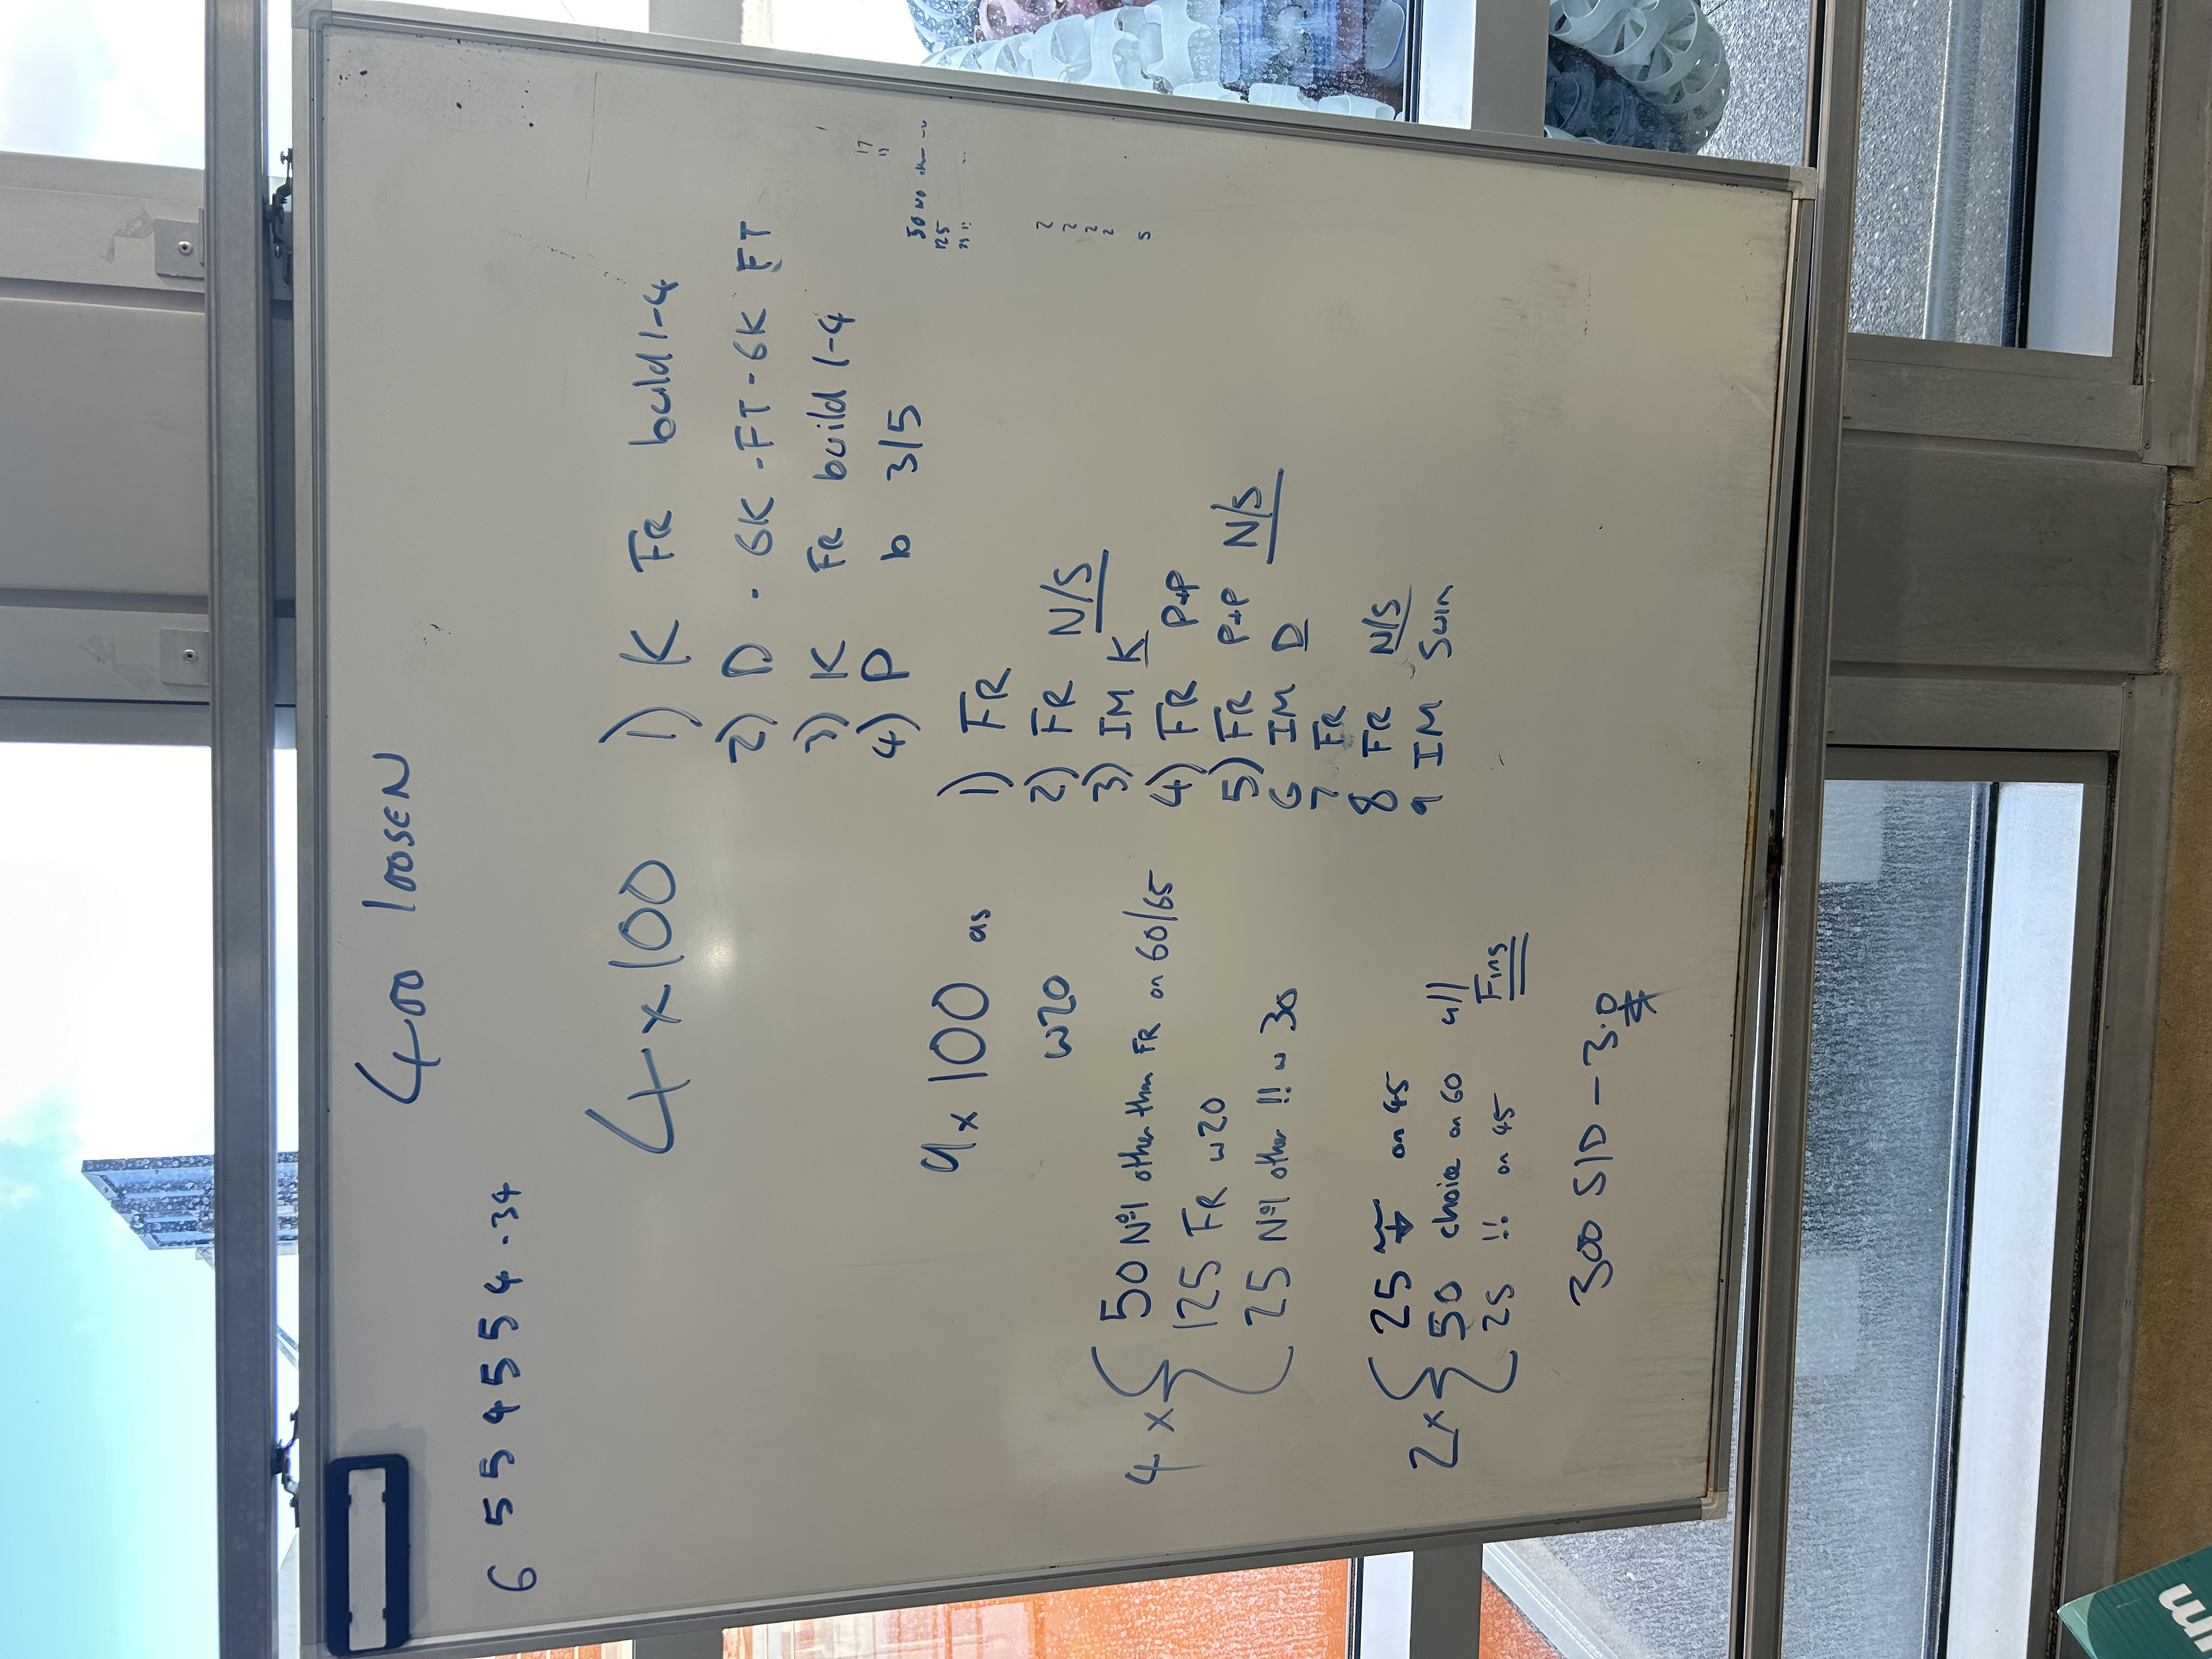 400 loosen
6 5 5 4 5 5 4 . 34
4 x 100 1) K FR build 1-4
2) D . 6K . FT . 6K FT
3) K FR build 1-4
4) P b 3/5
9 x 100 as 1) FR
w20 2) FR N/S
3) IM K
4) FR P+P
5) FR P+P N/S
6 IM D
7 FR
8 FR N/S
9 IM Swim
4 x { 50 Nº1 other than FR on 60/65
125 FR w20
25 Nº1 other !! w 30
2 x { 25 on 45
50 choice on 60 all
25 !! on 45 Fins
300 S/D - 3.0
17
11
50 NO
125
25 !!
2
2
2
2
5